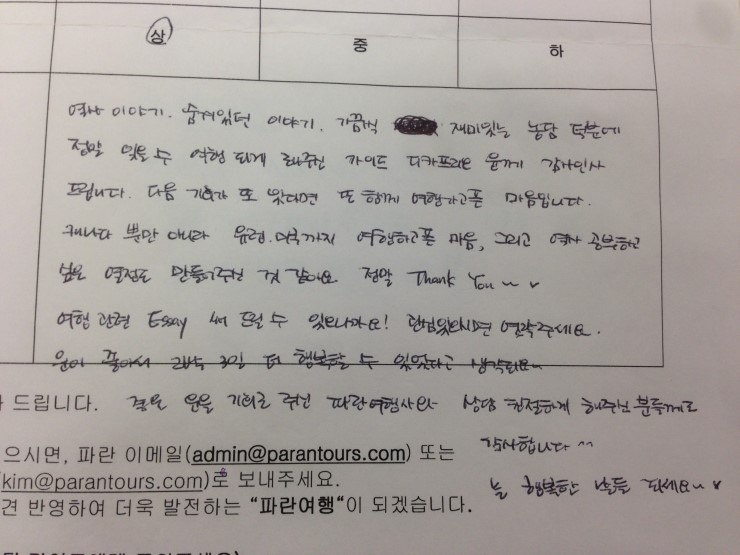 상 중 하
역사 이야기. 숨겨있던 이야기. 가끔씩 재미있는 농담 덕분에
정말 잊을 수 여행 되게 해주신 가이드 디카프리오 윤께 감사인사
드립니다. 다음 기회가 또 있다면 또 함께 여행가고픈 마음입니다.
캐나다 뿐만 아니라 유럽. 미국까지 여행하고픈 마음, 그리고 역사 공부하고
싶은 열정도 만들어주신 것 같아요 정말 Thank You ~ ♥
여행 관련 Essay 써 드릴 수 있으니까요! 관심있으시면 연락주세요.
운이 좋아서 2박 3일 더 행복할 수 있었다고 생각되요~
드립니다. 좋은 기회를 주신 파란여행사와 상당 친절하게 해주신 분들께도
으시면, 파란 이메일(admin@parantours.com) 또는 감사합니다 ^^
kim@parantours.com)로 보내주세요. 늘 행복한 날들 되세요~ ♥
견 반영하여 더욱 발전하는 “파란여행“이 되겠습니다.